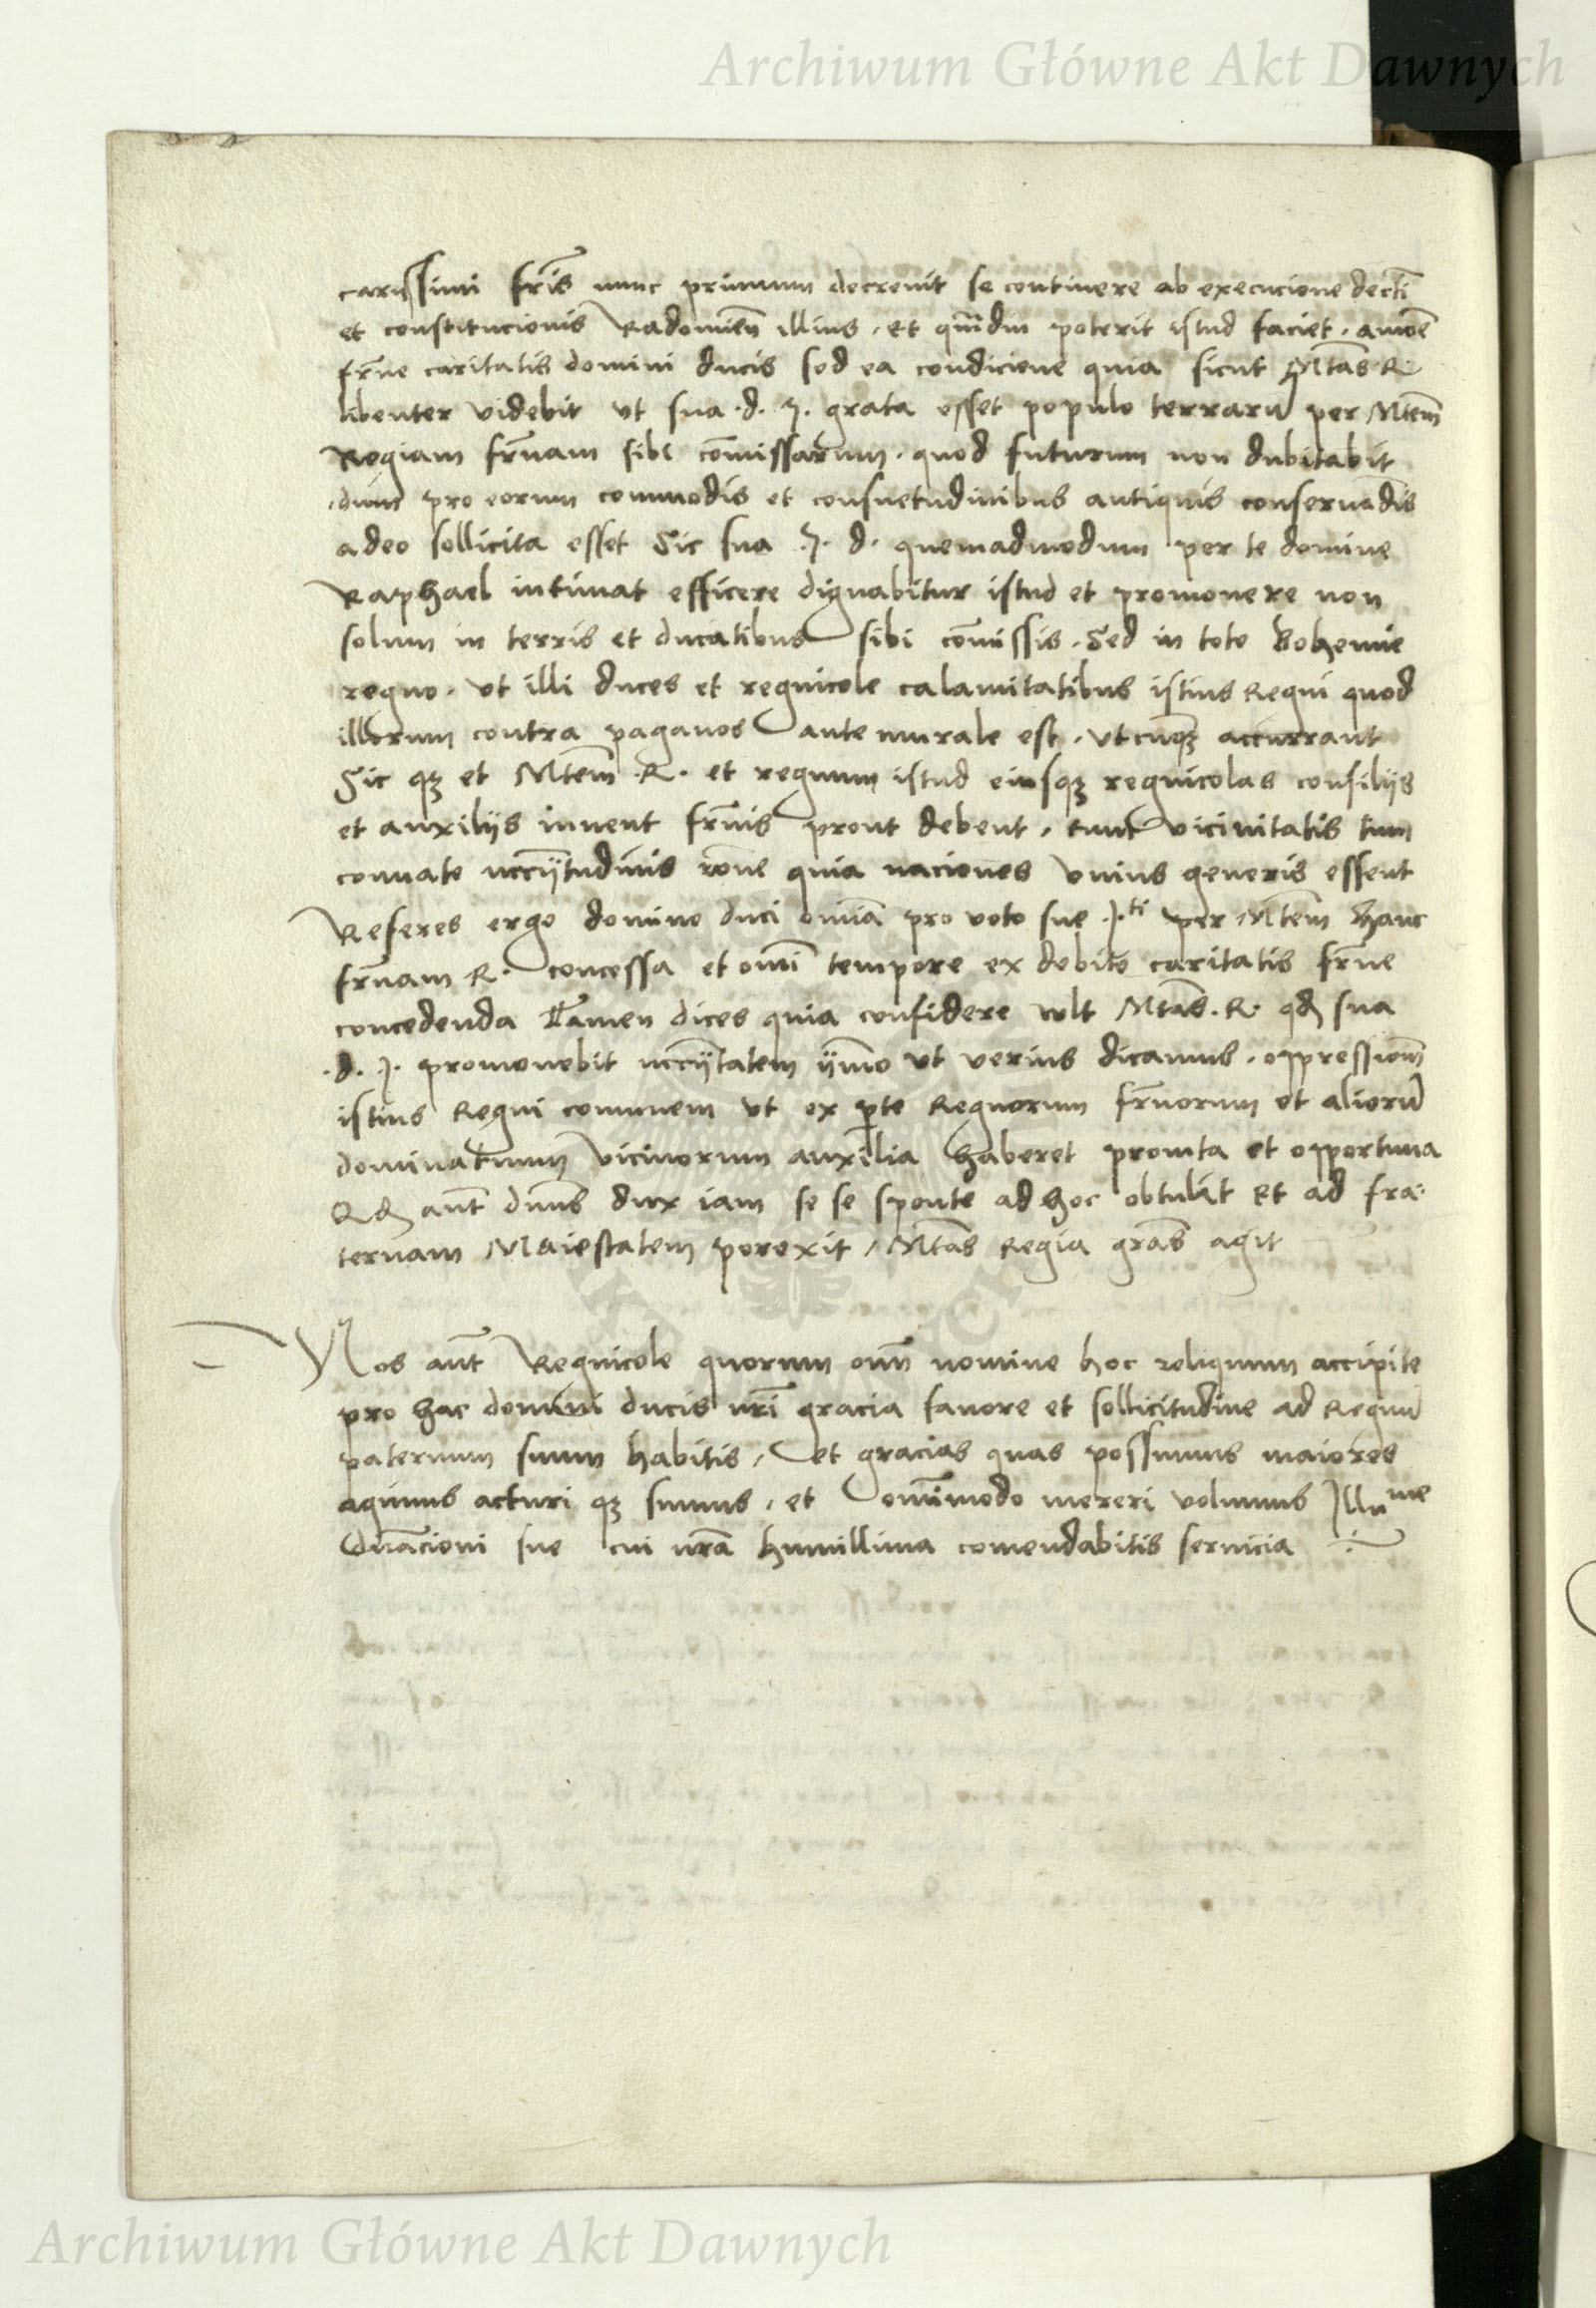 Archiwum Główne Akt Dawnych
carissimi fr̃is nunc primum decrevit se continere ab execucione decti
et constitucionis Radomień illius. et qm̃diu poterit istud faciet. amoẽ
fr̃ne caritatis domini ducis sed ea condicione quia sicut Mtas R
libenter videbit ut sua .d. I. grata esset populo terrarũ per Mtem̃
Regiam fr̃nam sibi com̃issarum. quod futurum non dubitabit
dum pro eorum commodis et consuetudinibus antiquis conseruãdis
adeo sollicita esset Sic sua .I. d. quemadmodum per te domine
Raphael intimat efficere dignabitur istud et promouere non
solum in terris et ducatibus sibi com̃issis. Sed in toto Bohemie
regno. ut illi duces et regnicole calamitatibus istius Regni quod
illorum contra paganos ante murale est. utcũqꝫ accurrant
Sic qꝫ et Mtem̃ .R. et regnum istud eiusqꝫ regnicolas consilijs
et auxilijs iuuent fr̃nis prout debent. tum vicinitatis tum
connate nccĩjtudinis rõne quia naciones vnius generis essent
Referes ergo domino duci om̃ia pro voto sue .I.ti per Mtem̃ hanc
fr̃nam R. concessa et om̃i tempore ex debito caritatis fr̃ne
concedenda Tamen dices quia confidere wlt Mtas̃. R. qđ sua
.d. I. promouebit nccĩjtatem ỹmo ut verius dicamus. oppressionem̃
istius Regni comunem ut ex pte Regnorum fr̃norum et aliorũ
dominatuum vicinorum auxilia haberet promta et opportuna
Qđ aut̃ dñus dux iam se se sponte ad hoc obtulit Et ad fra-
ternam Maiestatem porexit, Mtas̃ Regia grãs agit
Nos aut̃ Regnicole quorum om̃ nomine hoc reliquum accipite
pro hac domini ducis nr̃i gracia fauore et sollicitudine ad Regnũ
paternum suum habitis, et gracias quas possumus maiores
agimus acturi qꝫ sumus, et om̃imodo mereri volumus Illu me
Dñacioni sue cui nr̃a humillima comendabitis seruicia
Archiwum Główne Akt Dawnych